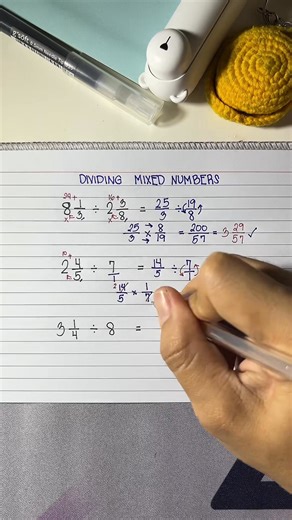 DIVIDING MIXED NUMBERS
8 1/3 ÷ 2 3/8 = 25/3 ÷ 19/8
25/3 × 8/19 = 200/57 = 3 29/57 ✓
2 4/5 ÷ 7/1 = 14/5 ÷ 7
14/5 × 1/7
3 1/4 ÷ 8 =